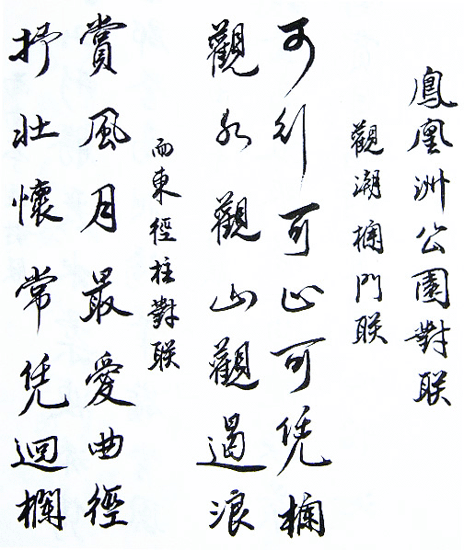 鳳凰洲公園對联
觀潮欄門联
可行可止可凭欄
觀水觀山觀遏浪
而東徑柱對联
賞風月最愛曲徑
抒壮懷常凭迴欄